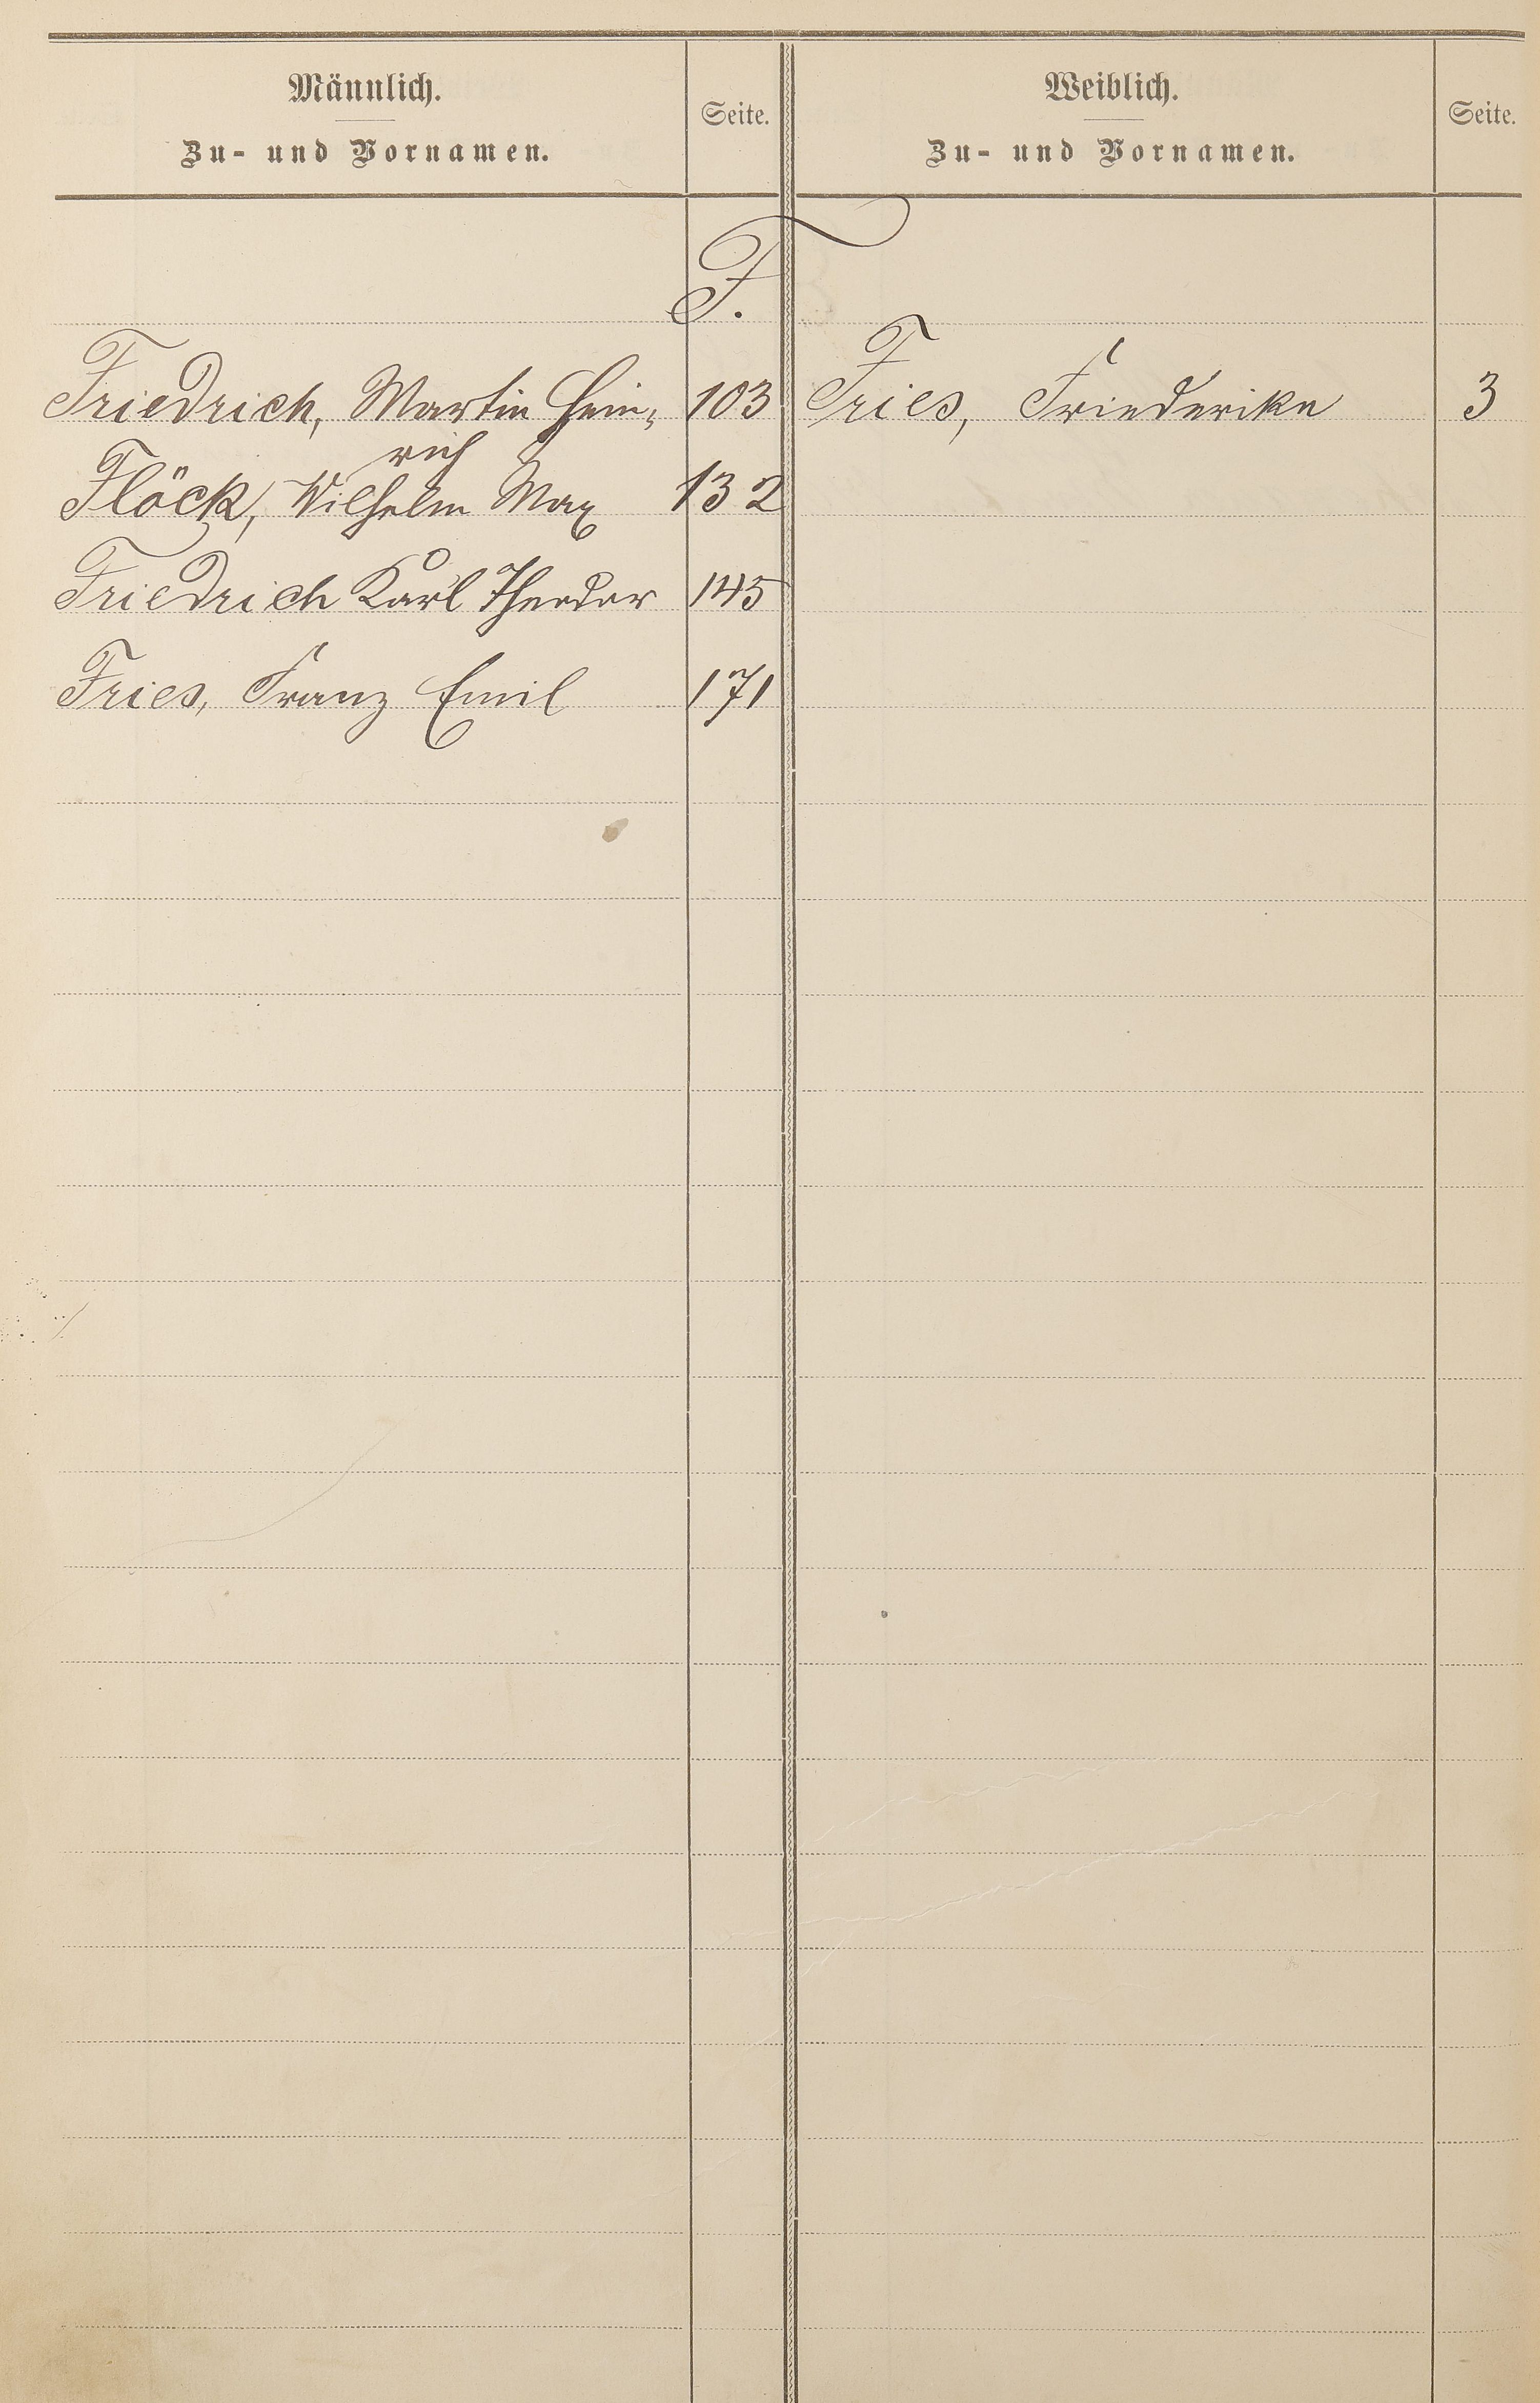 Männlich.
Zu- und Vornamen.
Seite.
Weiblich.
Zu- und Vornamen.
Seite.
F.
Friedrich, Martin Hein- 103 Fries, Friederike 3
rich
Flöck, Wilhelm Max 132
Friedrich Karl Theodor 145
Fries, Franz Emil 171